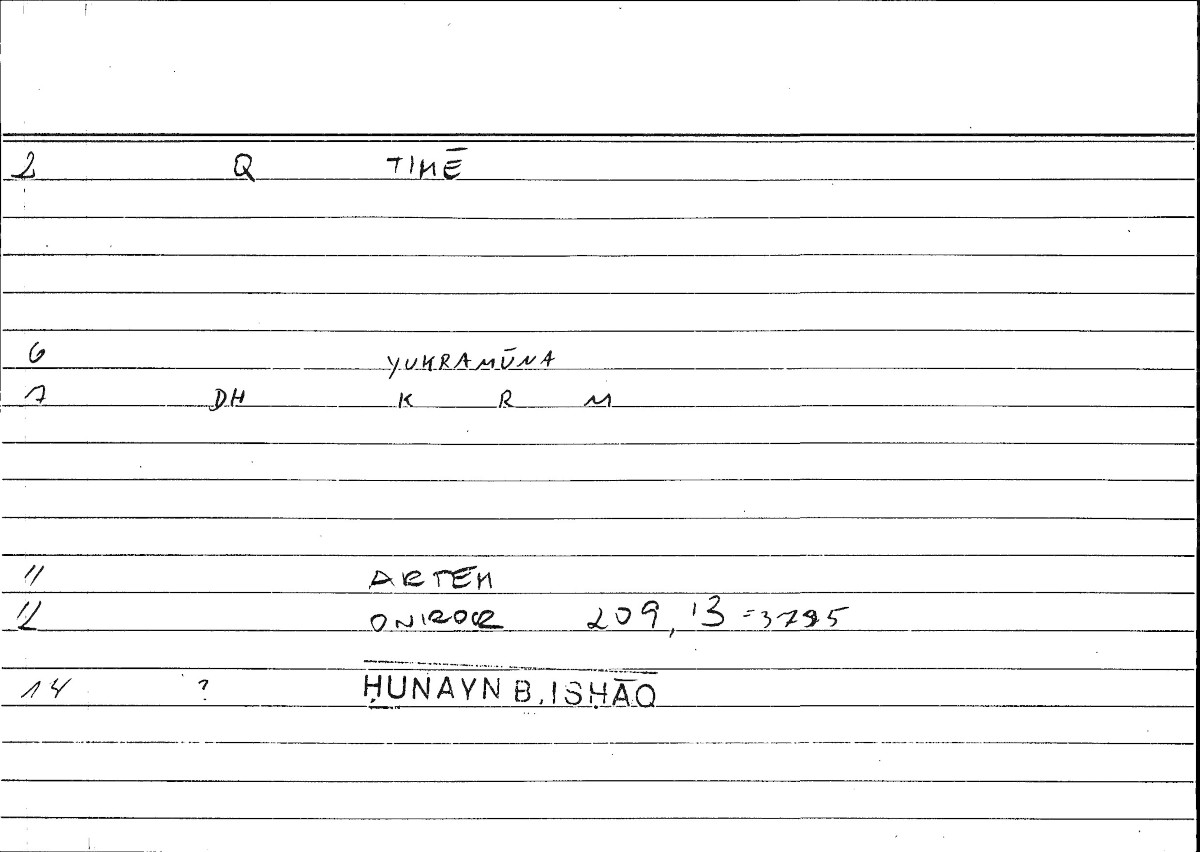 2 Q TIMĒ
6 YUKRAMŪNA
7 DH K R M
11 ARTEM
12 ONIROCR 209, 13 = 3785
14 ? ḤUNAYN B. ISḤĀQ